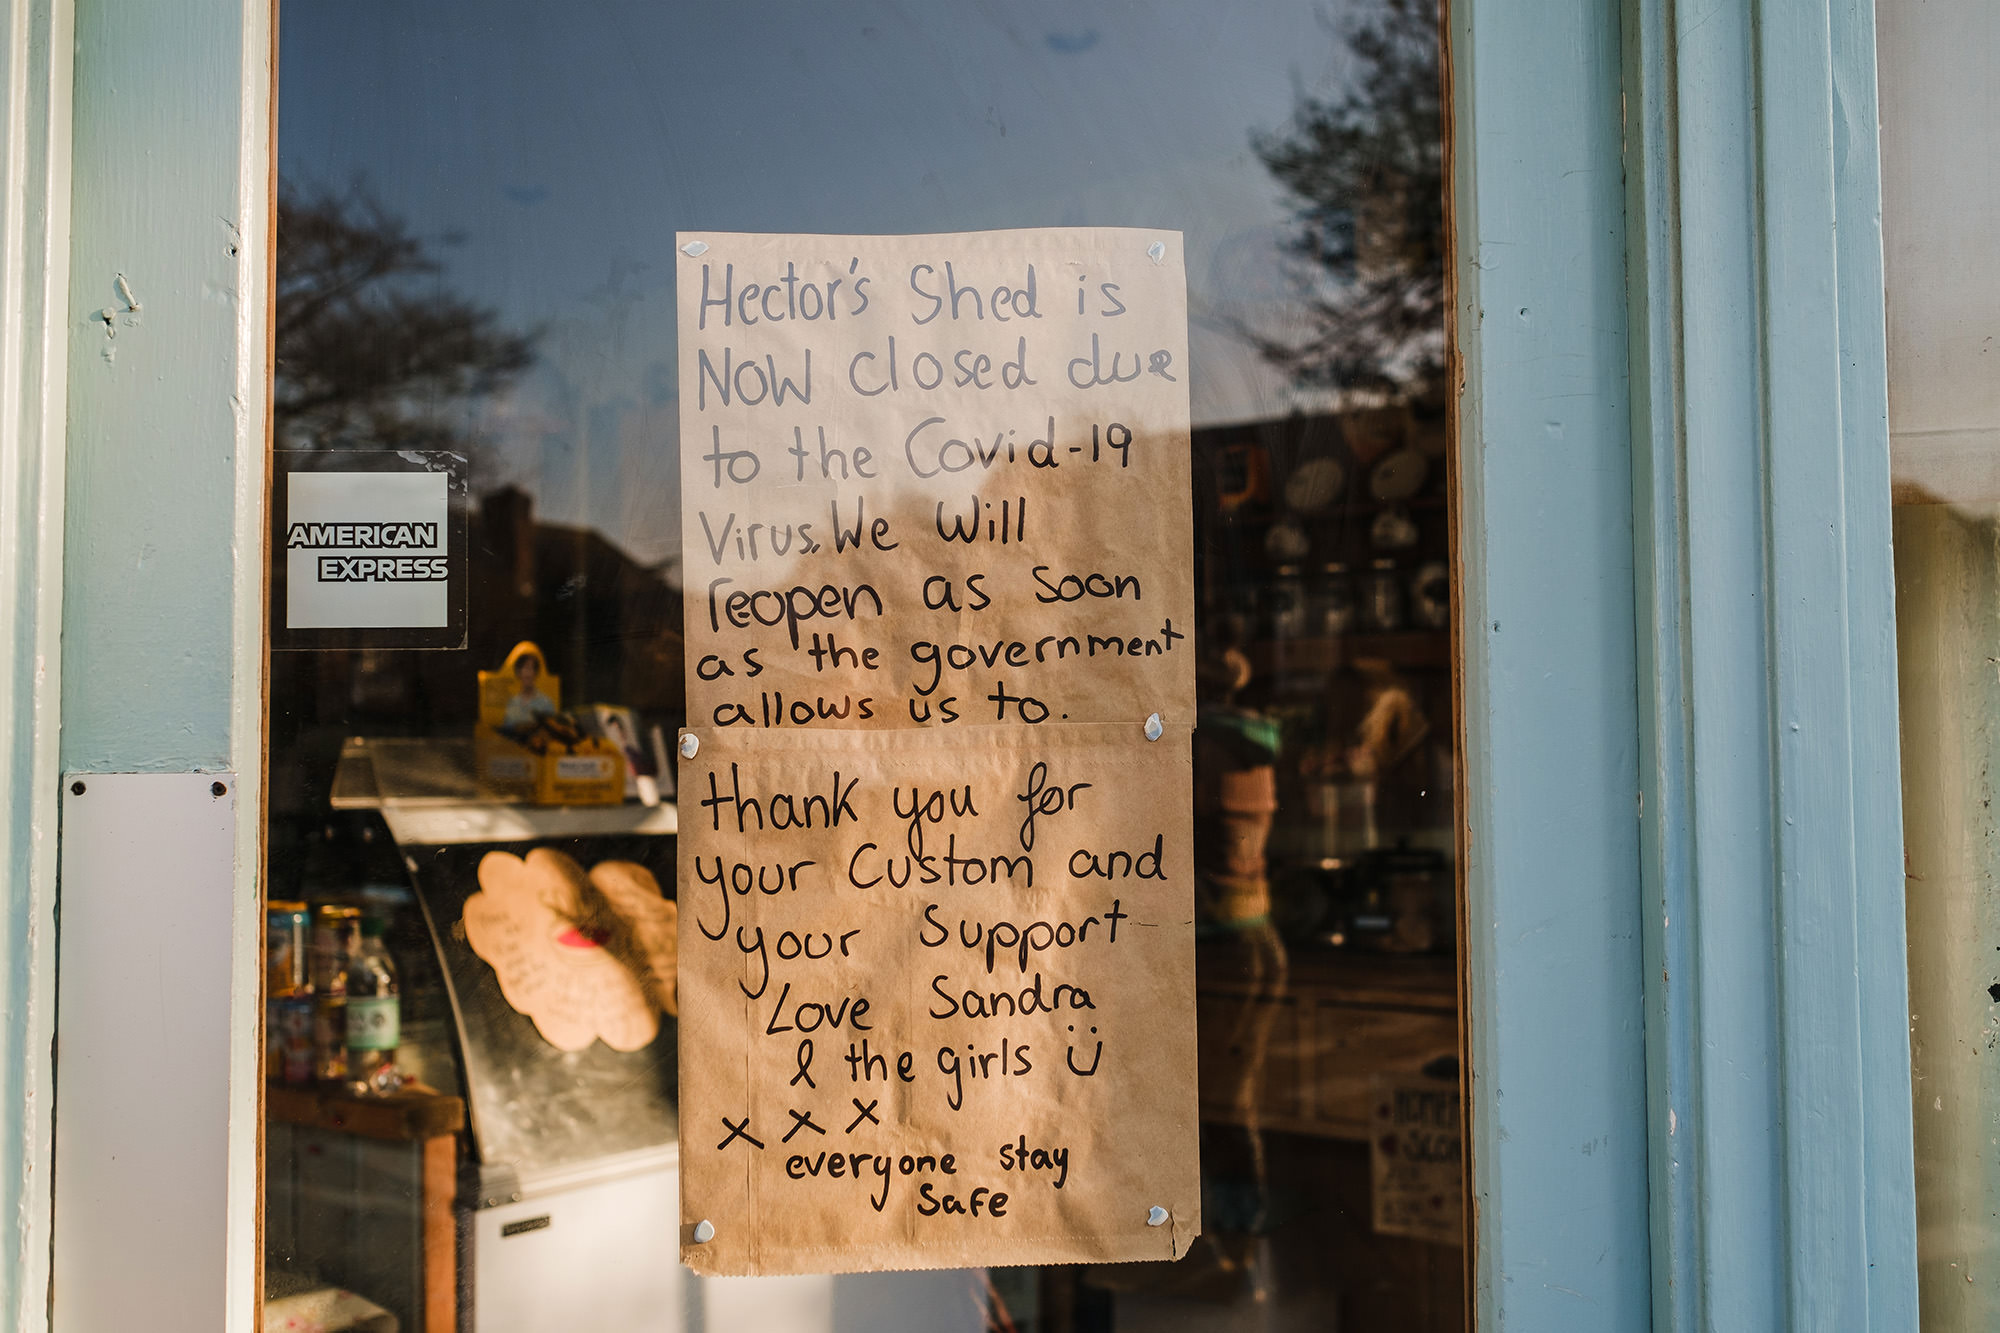 Hector's Shed is
NOW closed due
to the Covid-19
Virus. We Will
reopen as soon
as the government
allows us to.
thank you for
your custom and
your Support
Love Sandra
& the girls
x x x
everyone stay
safe
AMERICAN
EXPRESS